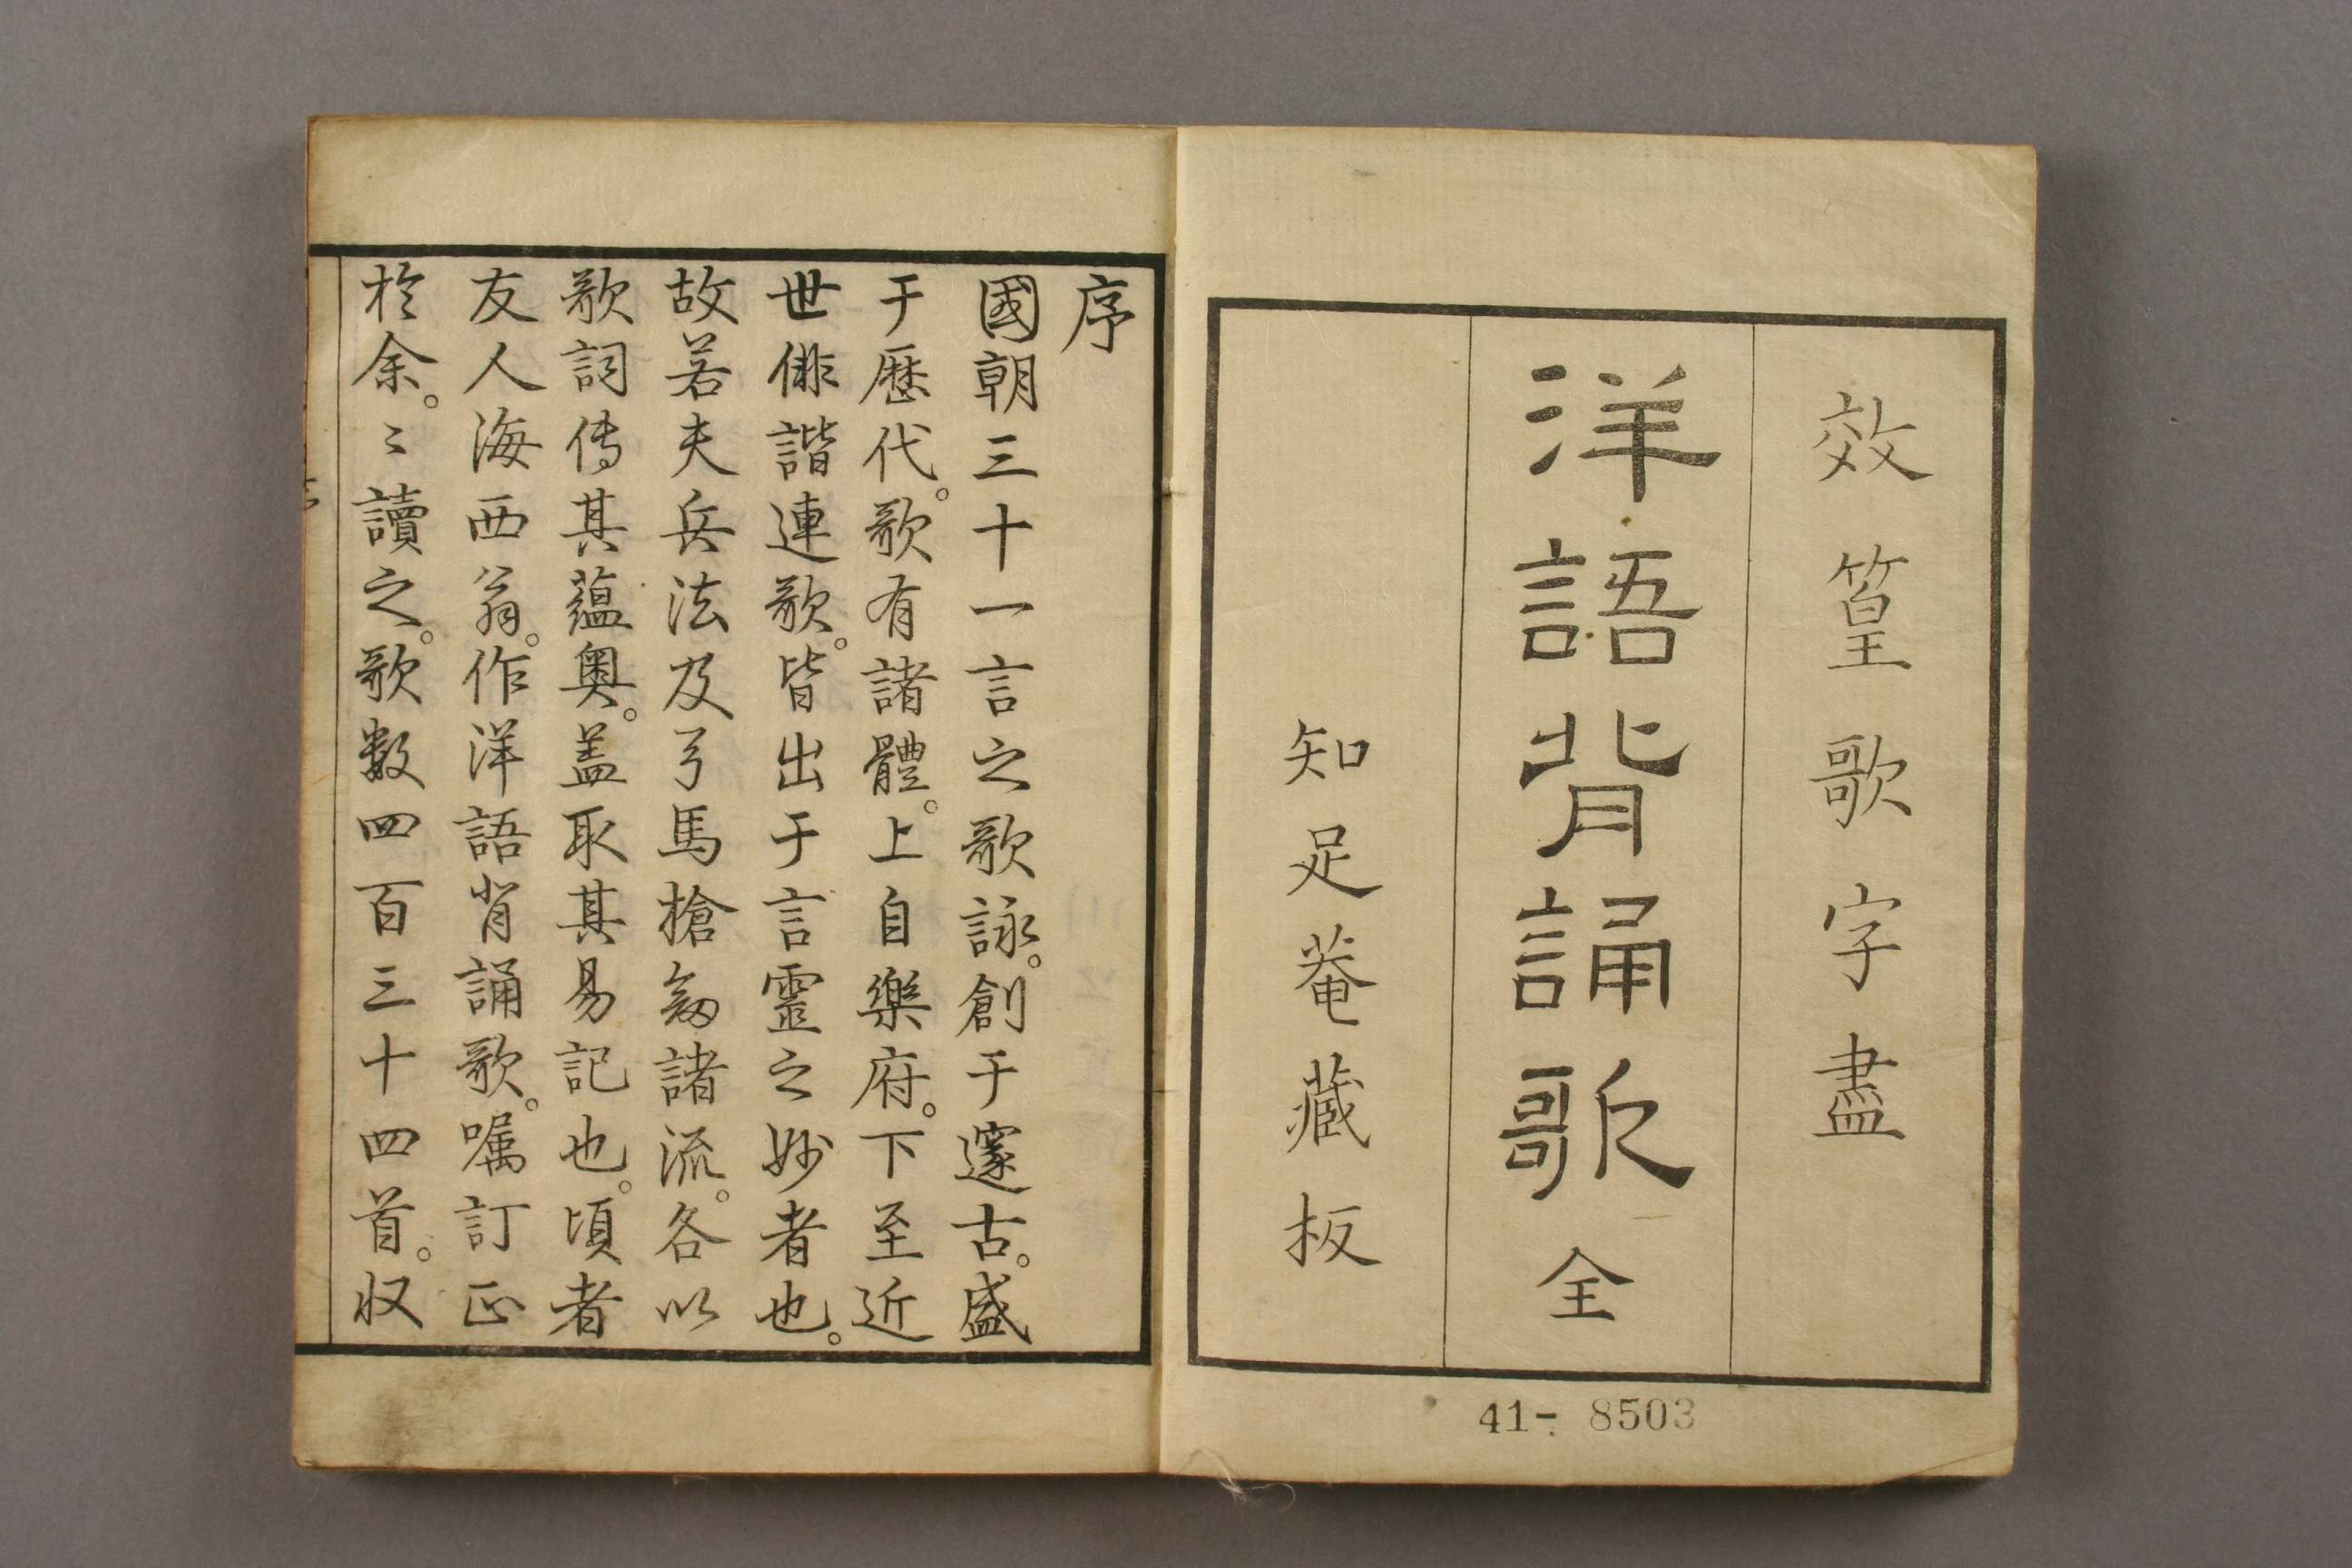 效篁歌字盡
洋語背誦歌 全
知足菴藏板
41-8503
序
國朝三十一言之歌詠。創于邃古。盛
于歷代。歌有諸體。上自樂府。下至近
世俳諧連歌。皆出于言靈之妙者也。
故若夫兵法及弓馬槍劔諸流。各以
歌詞傳其蘊奧。盖取其易記也。頃者
友人海西翁。作洋語背誦歌。嘱訂正
於余。〻讀之。歌数四百三十四首。収